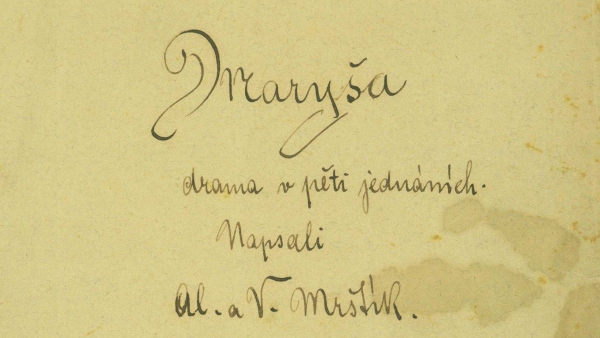 Maryša
drama v pěti jednáních.
Napsali
Al. a V. Mrštík.